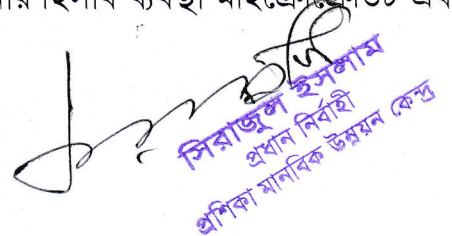 হিসাব ব্যবস্থা মাইক্রোক্রেডিট এবং
সিরাজুল ইসলাম
প্রধান নির্বাহী
প্রশিকা মানবিক উন্নয়ন কেন্দ্র